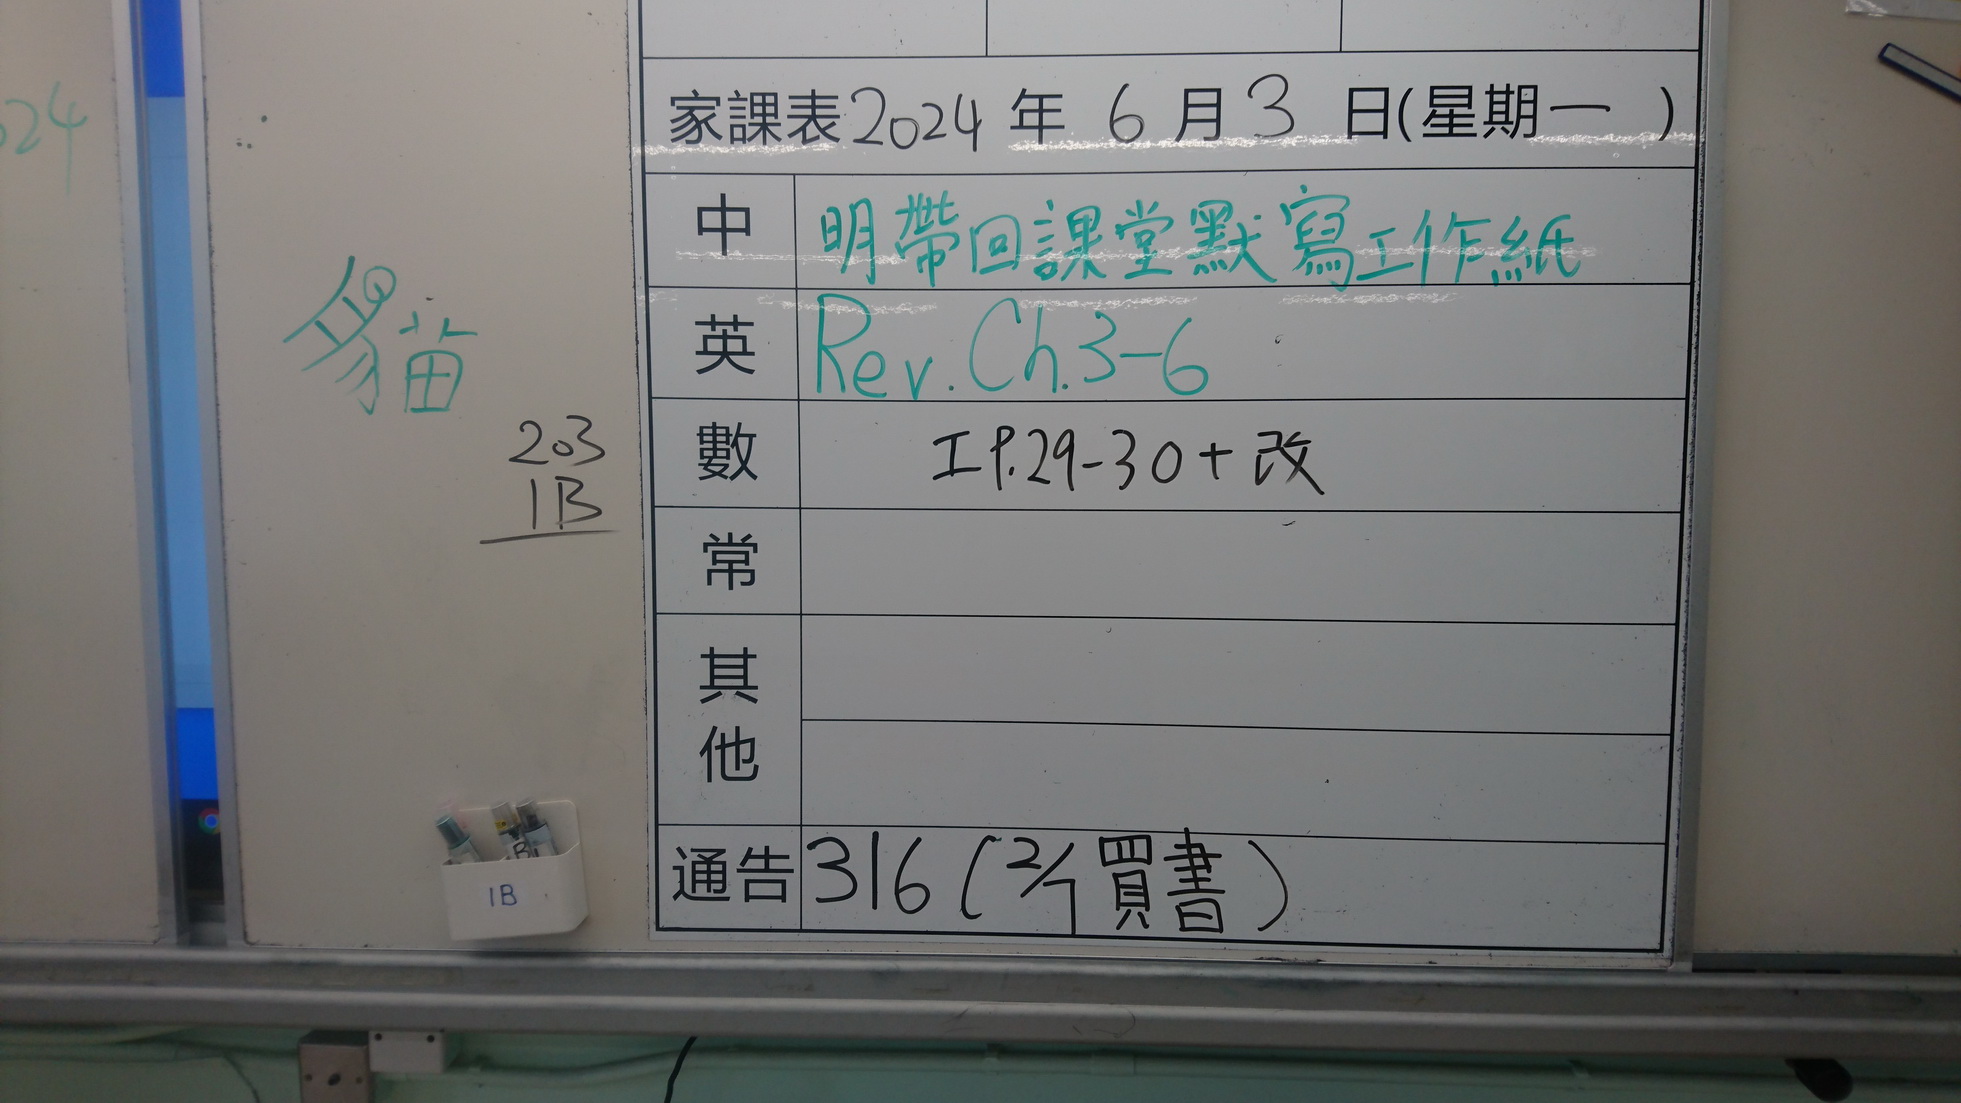 024
貓
203
1B
家課表2024年6月3日(星期一)
中 明帶回課堂默寫工作紙
英 Rev. Ch.3-6
數 工P.29-30+改
常
其他
通告 316(2/7買書)
1B